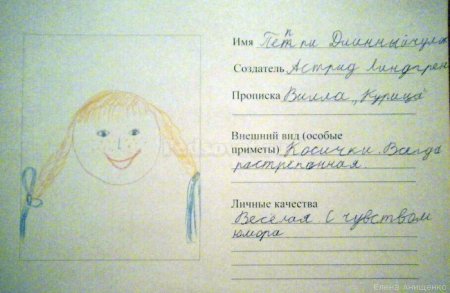 Имя Пеппи Длинныйчулок
Создатель Астрид Линдгрен
Прописка Вилла „Курица"
Внешний вид (особые
приметы) Косички. Всегда
растрепанная.
Личные качества
Весёлая С чувством
юмора
Елена Анищенко